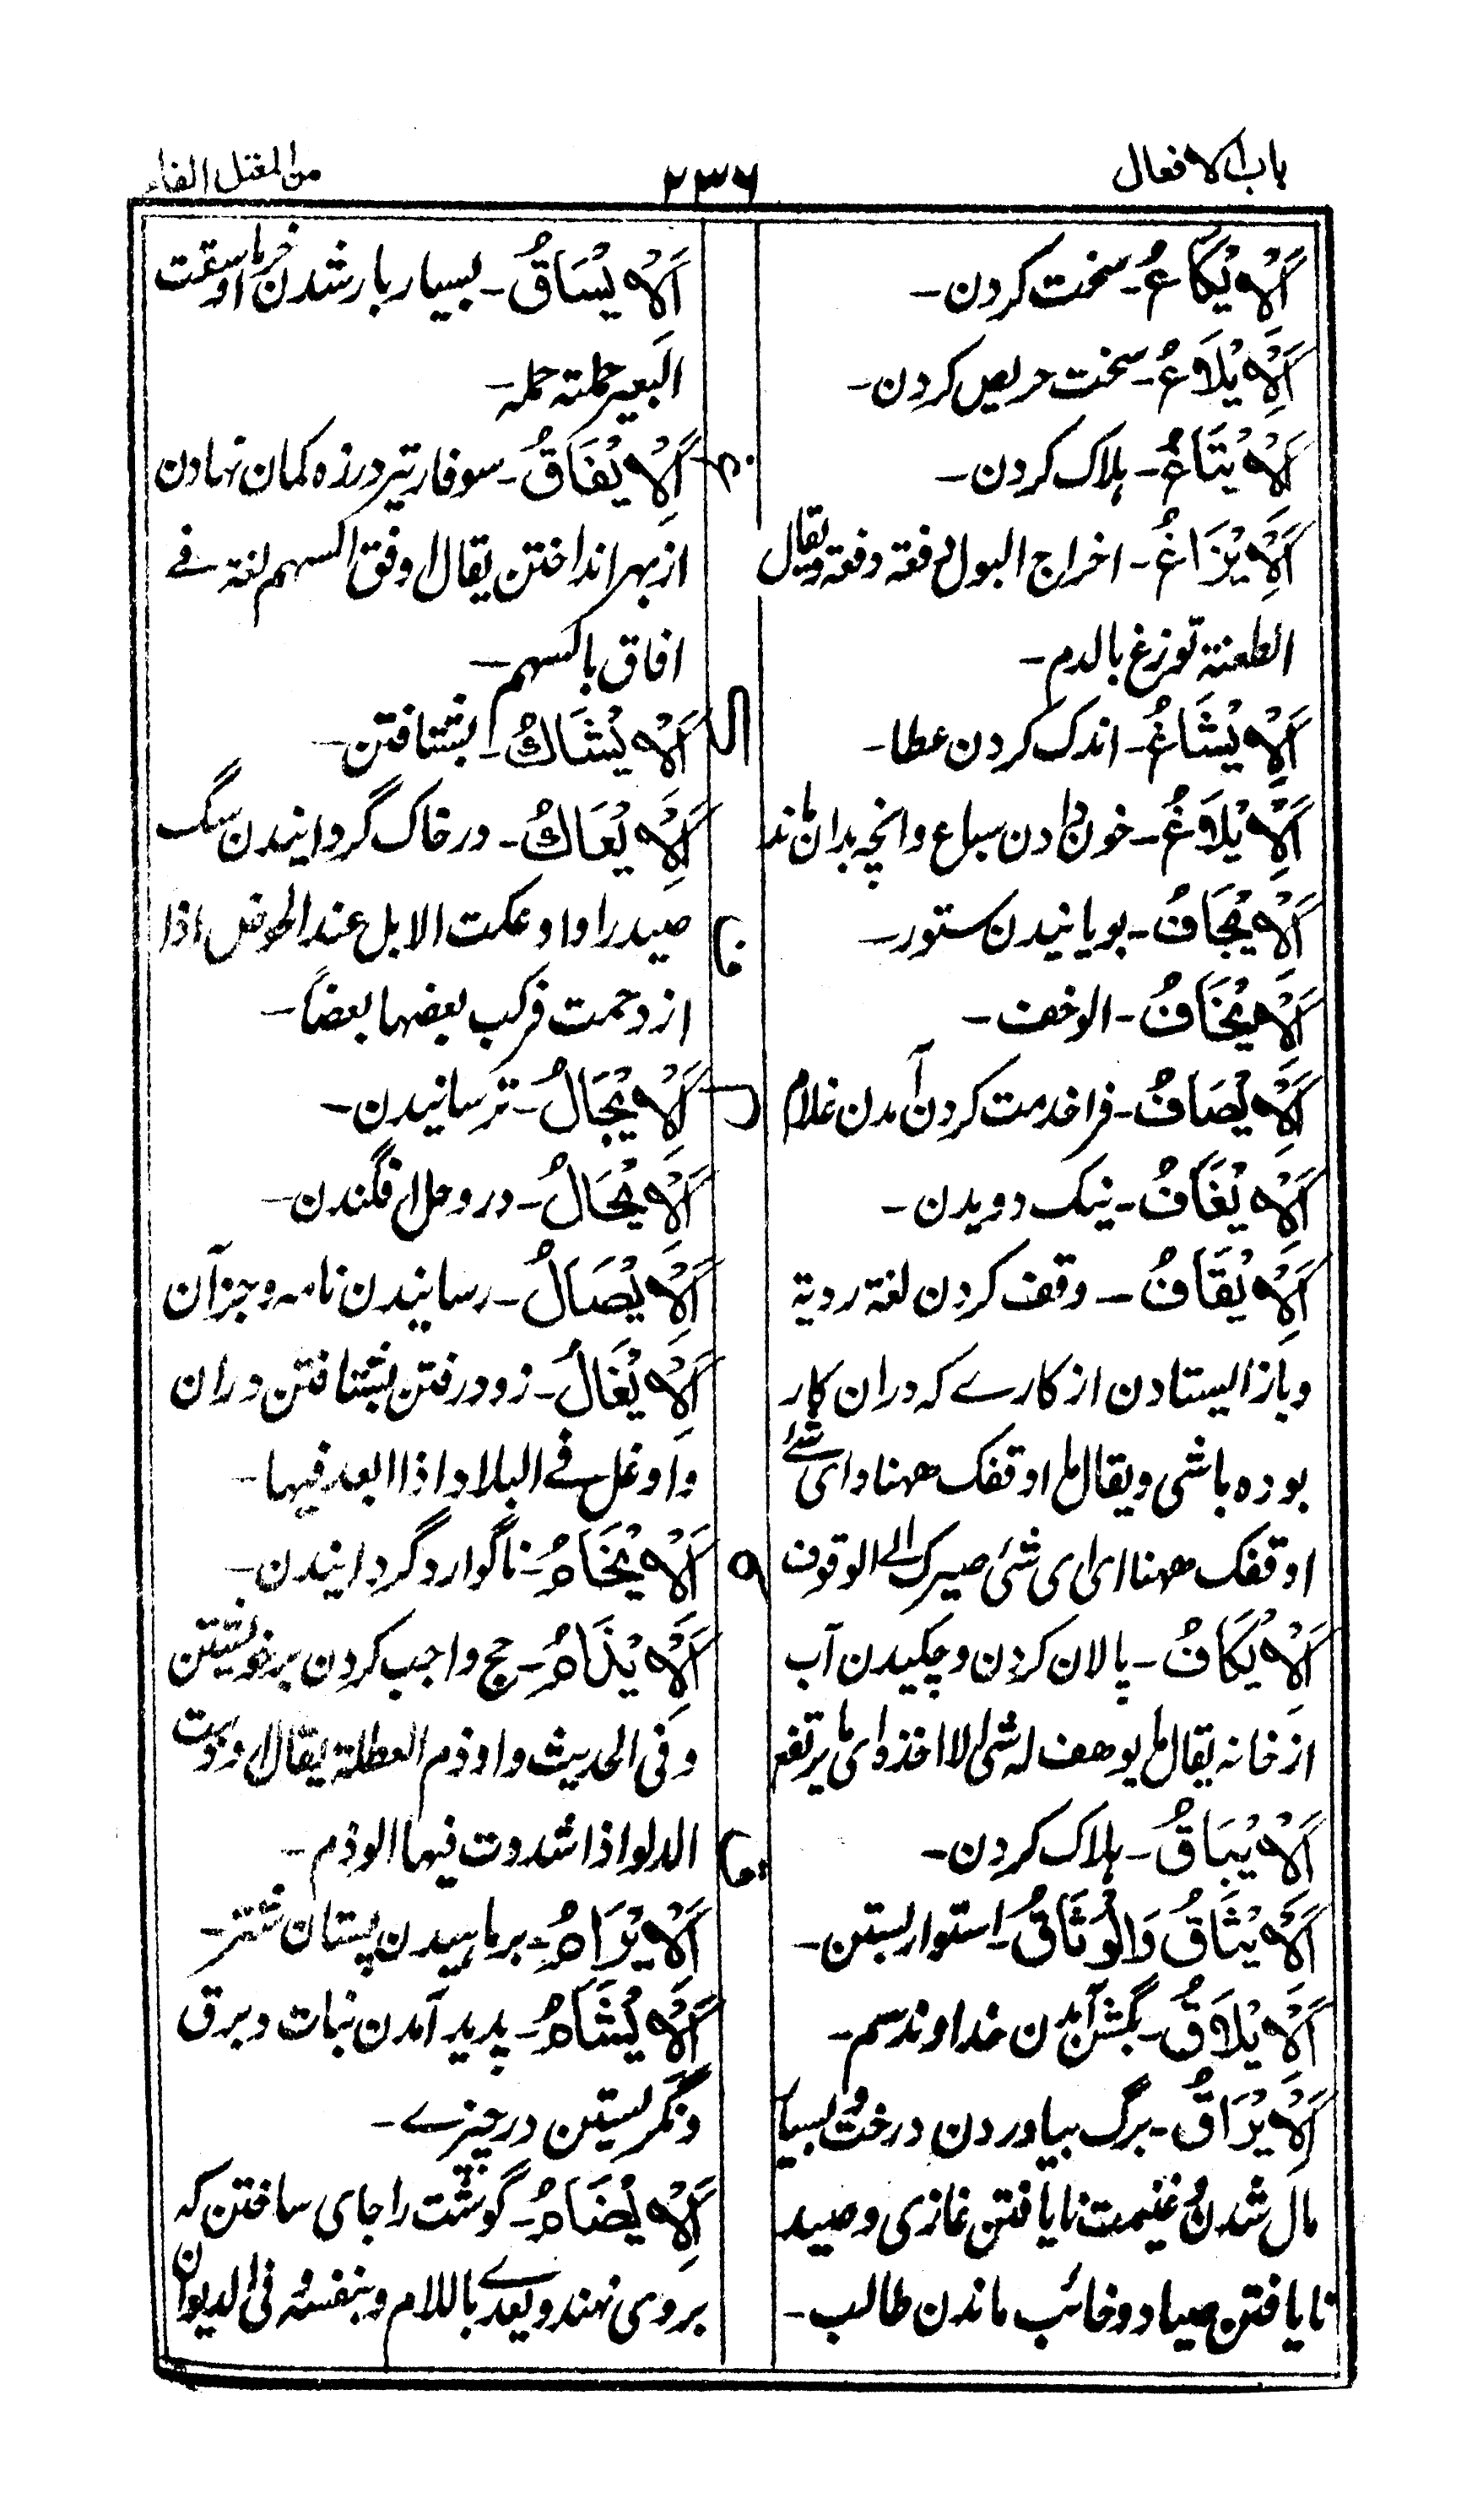 باب الافعال
۲۳۶
من المعتل الفاء
اَلْاِیْكَاعُ ـ سخت کردن ـ
اَلْاِیْلَاعُ ـ سخت حریص کردن ـ
اَلْاِیْتَاغُ ـ ہلاک کردن ـ
اَلْاِیْزَاغُ ـ اخراج البول دفعة دفعة ویقال
الطعنة توزغ بالدم ـ
اَلْاِیْشَاغُ ـ اندک کردن عطا ـ
اَلْاِیْلَاغُ ـ خون دادن سباع وانچہ بدان ماند
اَلْاِیْجَافُ ـ پویانیدن ستور ـ
اَلْاِیْخَافُ ـ الوخف ـ
اَلْاِیْصَافُ ـ فرا خدمت کردن آمدن غلام
اَلْاِیْغَافُ ـ نیک دویدن ـ
اَلْاِیْقَافُ ـ وقف کردن لغة ردیة
وباز ایستادن از کارے کہ دران کار
بودہ باشی ویقال ما اوقفک ھہنا وای شئے
اوقفک ھہنا ای ای شئ صیرک الے الوقوف
اَلْاِیْكَافُ ـ پالان کردن وچکیدن آب
از خانہ یقال ما یوھف لہ شئ الا اخذہ ای ما یرتفع
اَلْاِیْبَاقُ ـ ہلاک کردن ـ
اَلْاِیْثَاقُ وَالْوَثَاقُ ـ استوار بستن ـ
اَلْاِیْلَاقُ ـ بگشن آمدن خداوند سم ـ
اَلْاِیْرَاقُ ـ برگ بیاوردن درخت و بسیار
مال شدن و غنیمت نایافتن غازی وصید
نایافتن صیاد وخائب ماندن طالب ـ
اَلْاِیْسَاقُ ـ بسیار بار شدن خرما واوسقت
البعیر حملتہ حملہ ـ
اَلْاِیْفَاقُ ـ سوفار تیر در زہ کمان نہادن
از بہر انداختن یقال اوفق السہم لغة فے
افاق بالسہم ـ
اَلْاِیْشَاكُ ـ بشتافتن ـ
اَلْاِیْعَاكُ ـ در خاک گردانیدن سگ
صید را واوعکت الابل عند الحوض اذا
ازدحمت فرکب بعضہا بعضاً ـ
اَلْاِیْجَالُ ـ ترسانیدن ـ
اَلْاِیْحَالُ ـ در وحل افگندن ـ
اَلْاِیْصَالُ ـ رسانیدن نامہ وجز آن
اَلْاِیْغَالُ ـ زود رفتن بشتافتن دران
واوغل فے البلاد اذا ابعد فیہا ـ
اَلْاِیْخَامُ ـ ناگوارد گردانیدن ـ
اَلْاِیْذَامُ ـ حج واجب کردن بر خویشتن
وفی الحدیث واوذم العطلة یقال اوذمت
الدلو اذا شددت فیہا الوذم ـ
اَلْاِیْرَامُ ـ برماسیدن پستان شتر ـ
اَلْاِیْشَامُ ـ پدید آمدن نبات وبرق
ونگریستن در چیزے ـ
اَلْاِیْضَامُ ـ گوشت را جای ساختن کہ
بروی نہند ویعدے باللام وبنفسہ فی الدیوان